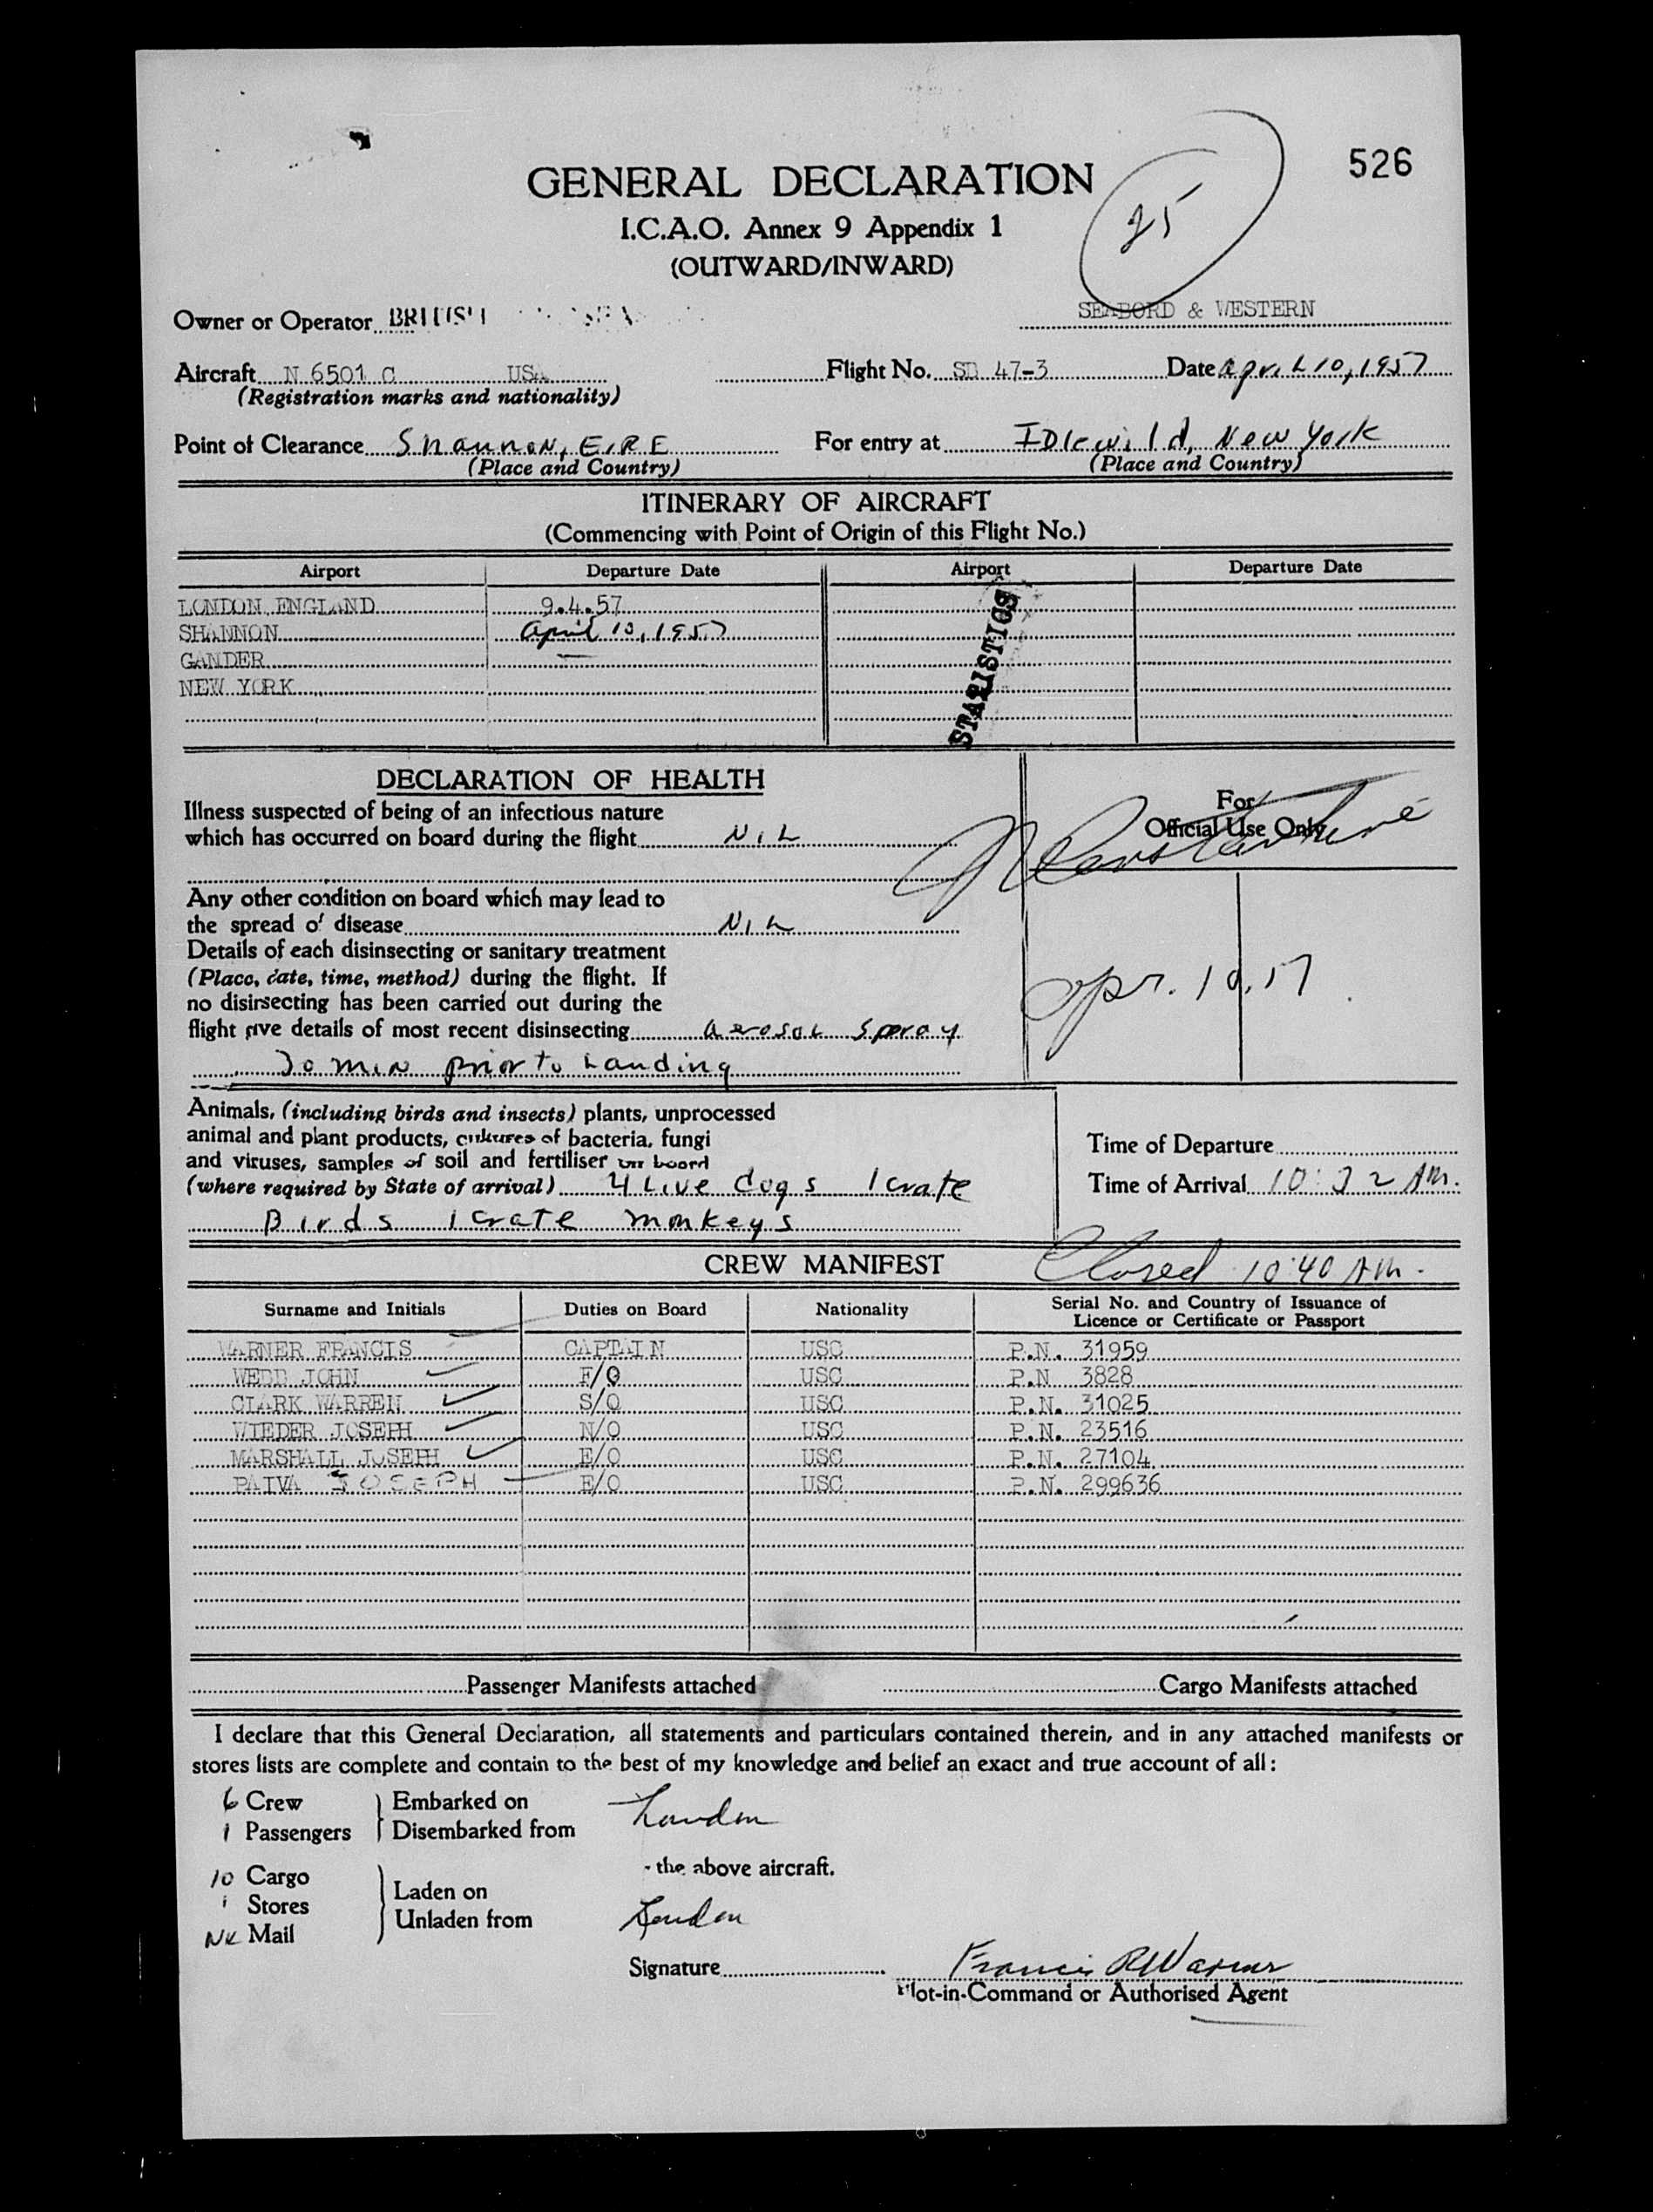 526
GENERAL DECLARATION
25
I.C.A.O. Annex 9 Appendix 1
(OUTWARD/INWARD)
Owner or Operator BRITISH SEABORD & WESTERN
Aircraft N 6501 C USA Flight No. SD 47-3 Date April 10, 1957
(Registration marks and nationality)
Point of Clearance Shannon, EIRE For entry at IDlewild, New York
(Place and Country) (Place and Country)
ITINERARY OF AIRCRAFT
(Commencing with Point of Origin of this Flight No.)
Airport Departure Date Airport Departure Date
LONDON ENGLAND 9.4.57
SHANNON April 10, 1957
GANDER
NEW YORK
STATISTICS
DECLARATION OF HEALTH
Illness suspected of being of an infectious nature For
which has occurred on board during the flight NIL Official Use Only
Any other condition on board which may lead to
the spread of disease NIL
Details of each disinsecting or sanitary treatment
(Place, date, time, method) during the flight. If
no disinsecting has been carried out during the Apr. 10.57
flight give details of most recent disinsecting aerosol Spray
30 min prior to Landing
Animals, (including birds and insects) plants, unprocessed
animal and plant products, cultures of bacteria, fungi Time of Departure
and viruses, samples of soil and fertiliser on board
(where required by State of arrival) 4 Live dogs 1 crate Time of Arrival 10:32 AM.
Birds 1 crate monkeys
CREW MANIFEST Closed 10:40 AM.
Surname and Initials Duties on Board Nationality Serial No. and Country of Issuance of
Licence or Certificate or Passport
WARNER FRANCIS CAPTAIN USC P.N. 31959
WEDD JOHN F/O USC P.N 3828
CLARK WARREN S/O USC P.N. 31025
WIEDER JOSEPH N/O USC P.N. 23516
MARSHALL JOSEPH E/O USC P.N. 27104
PAIVA JOSEPH E/O USC P.N. 299636
Passenger Manifests attached Cargo Manifests attached
I declare that this General Declaration, all statements and particulars contained therein, and in any attached manifests or
stores lists are complete and contain to the best of my knowledge and belief an exact and true account of all:
6 Crew Embarked on London
1 Passengers Disembarked from
the above aircraft.
10 Cargo Laden on
1 Stores
Nil Mail Unladen from London
Signature Francis R Warner
Pilot-in-Command or Authorised Agent